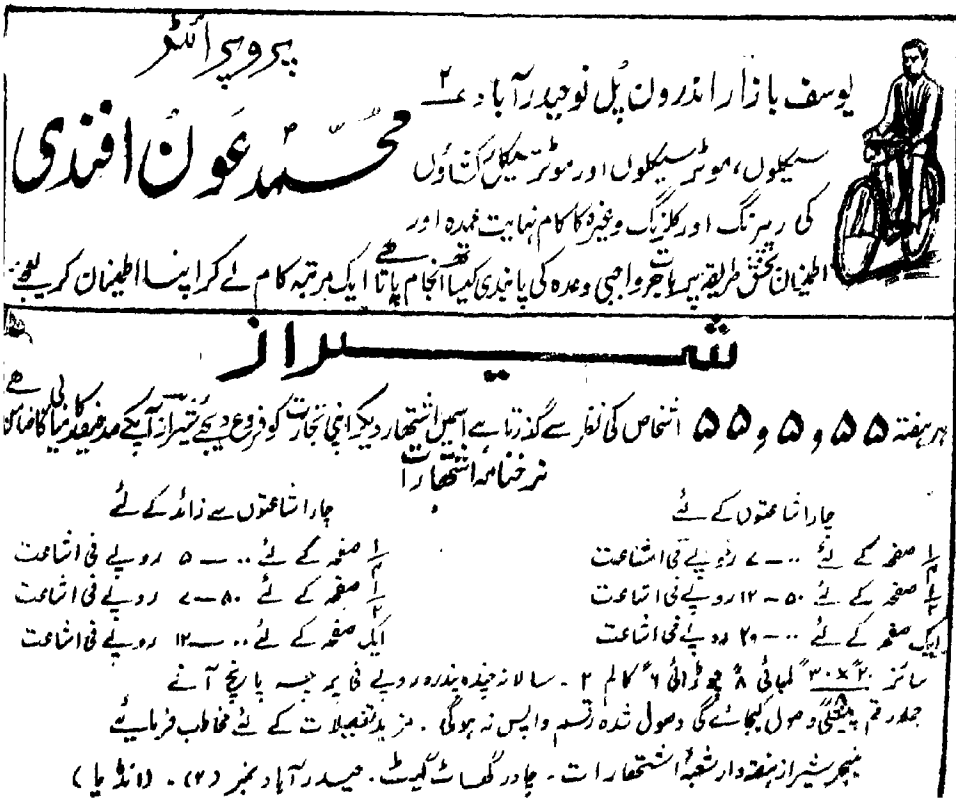 پروپرائٹر
محمد عون افندی
یوسف بازار اندرون پل نو حیدرآباد ۲
سیکلوں، موٹر سیکلوں اور موٹر سیکل رکشاؤں
کی رپیرنگ اور کلرنگ وغیرہ کا کام نہایت عمدہ اور
اطمینان بخش طریقہ پر باجرت واجبی وعدہ کی پابندی کیساتھ انجام پاتا ہے ایک مرتبہ کام لے کر اپنا اطمینان کر لیجئے
شیراز
ہر ہفتہ ۵۵،۵،۵۵ اشخاص کی نظر سے گذرتا ہے اسمیں اشتہار دیکر اپنی تجارت کو فروغ دیجئے شیراز آپکے صد فیصد کامیابی کا ضامن ہے
نرخنامہ اشتہارات
چار اشاعتوں کے لئے
۱/۴ صفحہ کے لئے ۰۰ــ۷ روپے فی اشاعت
۱/۲ صفحہ کے لئے ۵۰ــ۱۲ روپے فی اشاعت
ایک صفحہ کے لئے ۰۰ــ۲۰ روپے فی اشاعت
چار اشاعتوں سے زائد کے لئے
۱/۴ صفحہ کے لئے ۰۰ــ۵ روپے فی اشاعت
۱/۲ صفحہ کے لئے ۵۰ــ۷ روپے فی اشاعت
ایک صفحہ کے لئے ۰۰ــ۱۲ روپے فی اشاعت
سائز ۲۰×۳۰ لمبائی ۸" چوڑائی ۶" کالم ۲ ۔ سالانہ چندہ پندرہ روپے فی پرچہ پانچ آنے
جملہ رقم پیشگی وصول کیجائے گی وصول شدہ رقم واپس نہ ہوگی ۔ مزید تفصیلات کے لئے مخاطب فرمایئے
منیجر شیراز ہفتہ وار شعبۂ اشتہارات ۔ چادر گھاٹ گیٹ ۔ حیدرآباد نمبر (۲) ۔ (انڈیا)